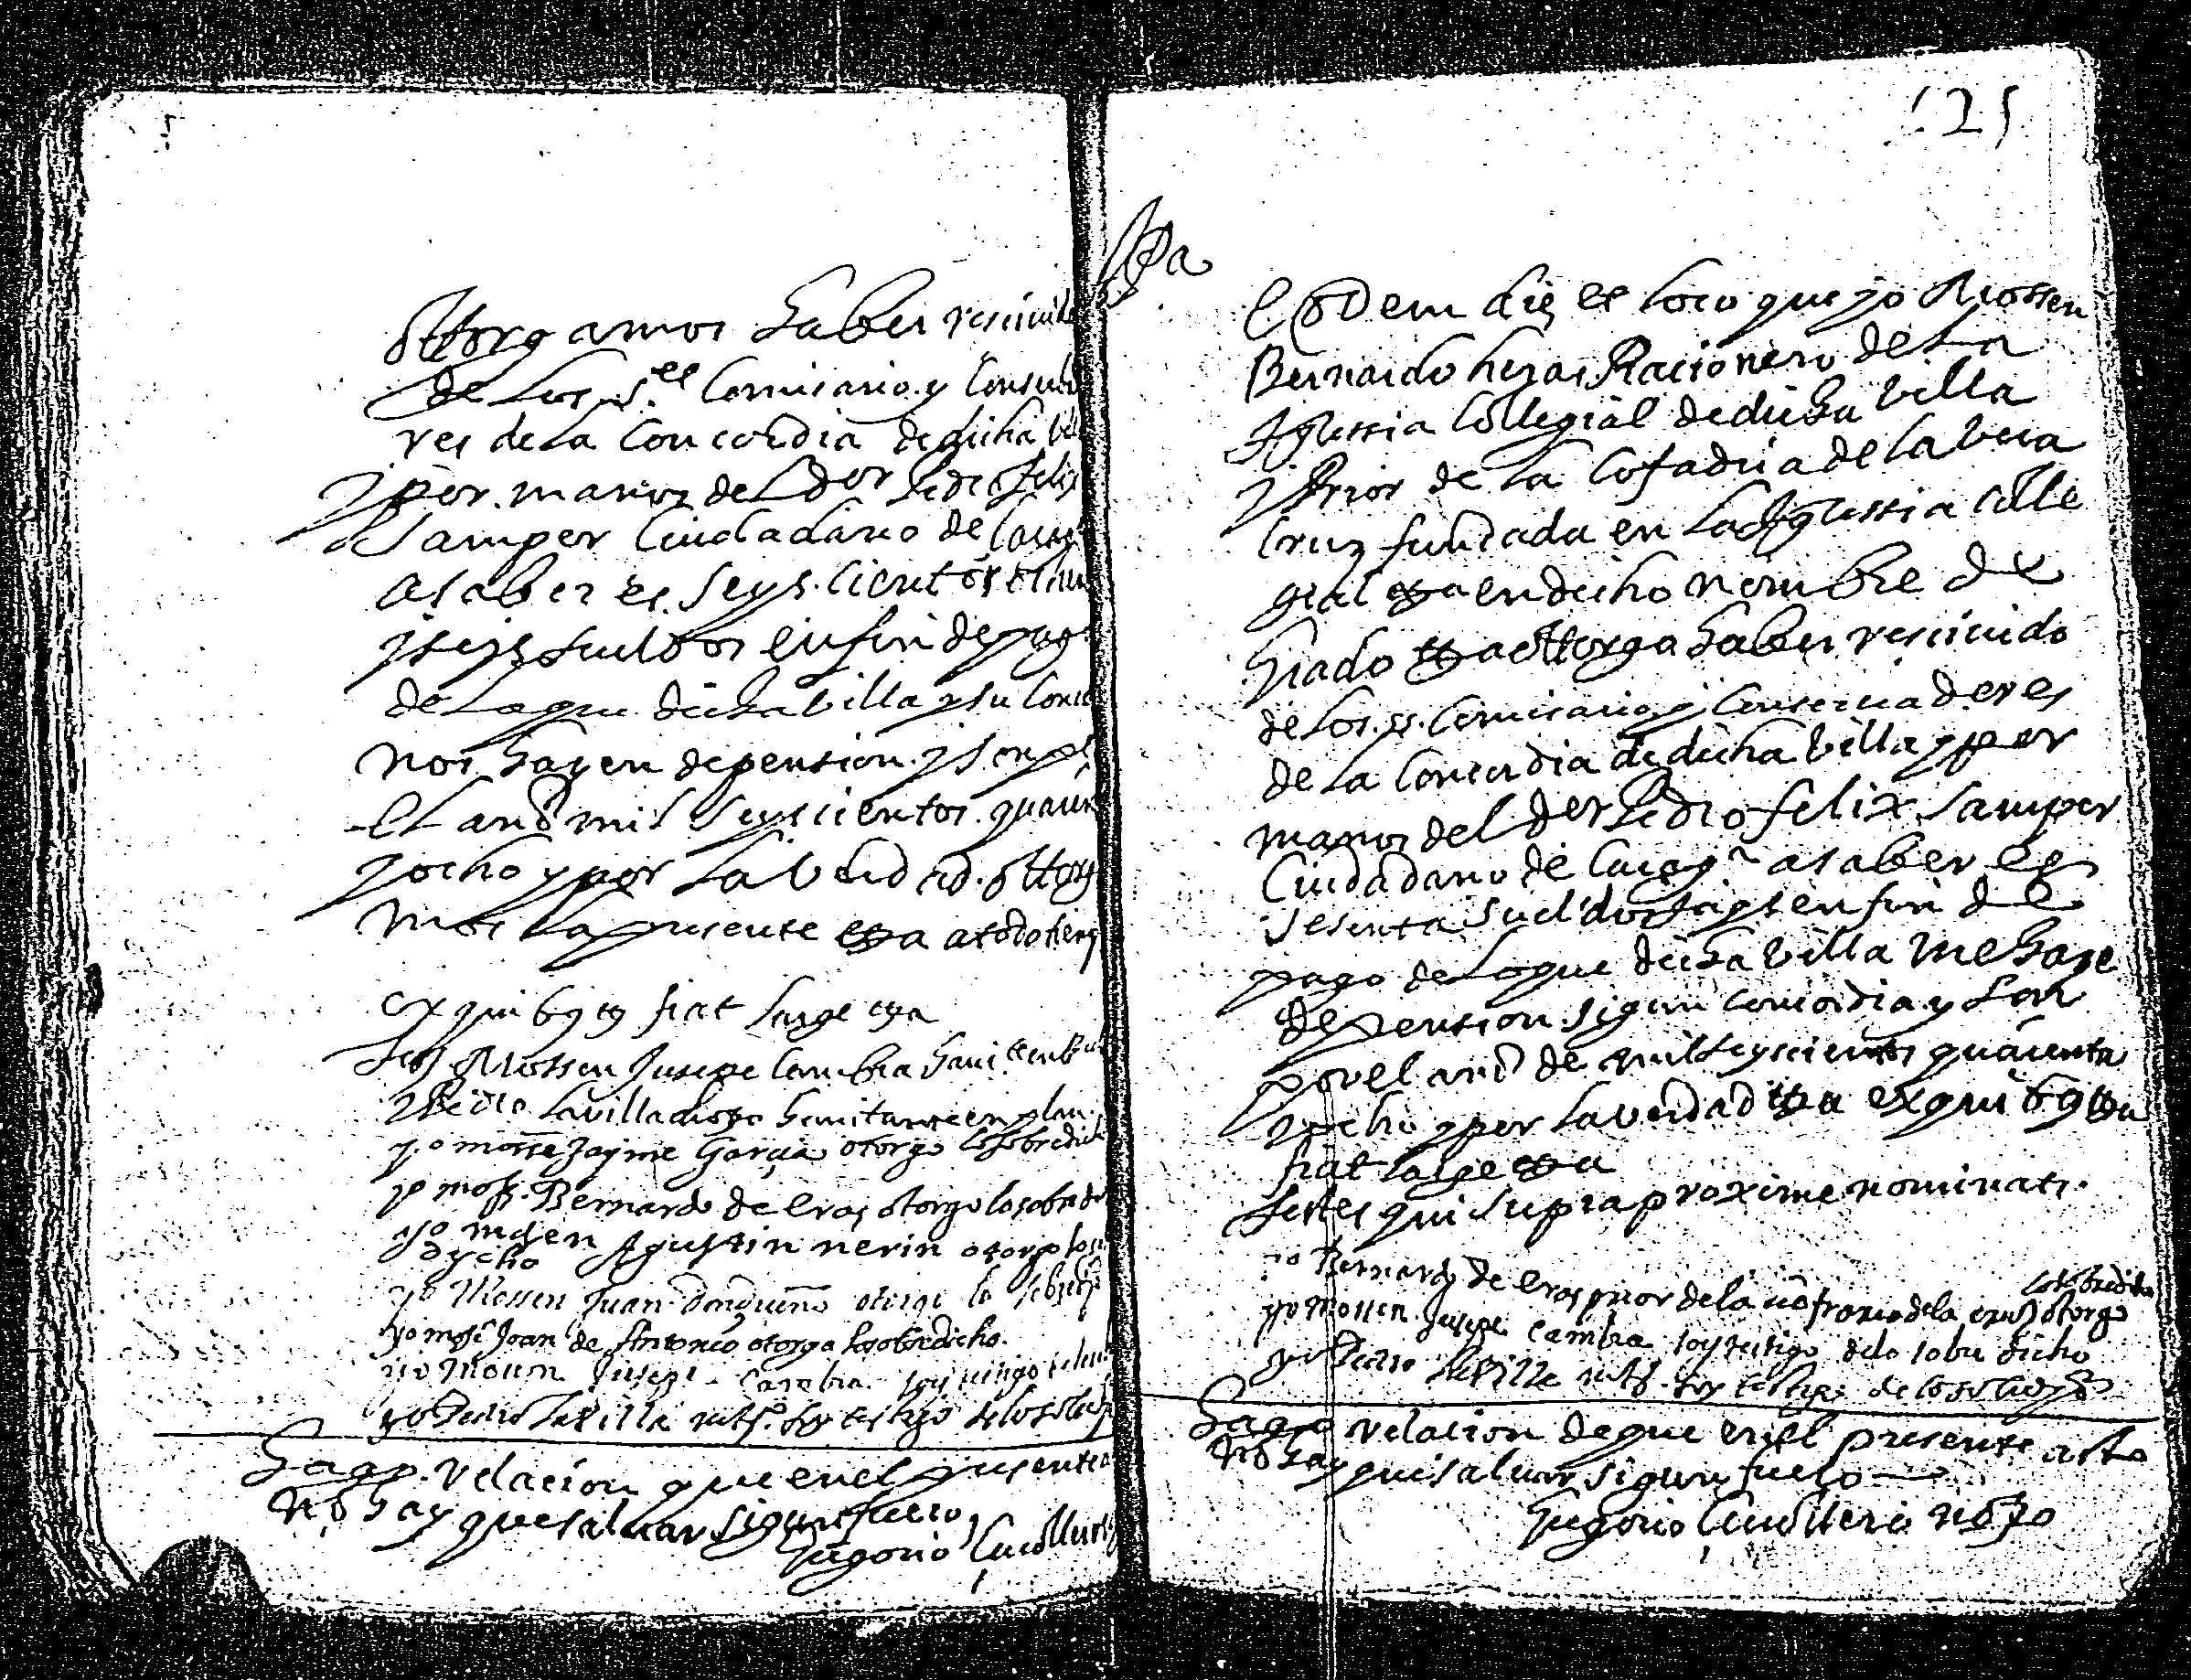 ottorgamos haber resciuido
de los S.es Comisario y Conserbado
res de la Concordia de dicha vil
y por manos del dor Pedro felix
Samper Ciudadano de Carag
asaber es seys cientos
y seys sueldos en fin de pago
de lo que dicha villa y su Conc
nos hazen de pension y son por
el año mil seyscientos quaren
y ocho y por la verdad ottorga
mos la presente epa a todo tiemp
ex quibus et fiat large epa
Tes Mossen Jusepe Cambra hauitt en
Pedro Lavilla
yo mosse Jayme Garcia otorgo lo sobredicho
yo moss. Bernardo de eras otorgo lo sobredi
yo mosen Agustin nerin otorgo lo so
dycho
yo Mossen Juan otorgo lo sobredi
yo mosē Joan de Antonio otorgo lo sobredicho.
yo Mossen Jusepe Cambra soy testigo
yo Pedro Lavilla soy testigo de lo sobredi
Hago relacion que en el presente a
no hay que saluar sigun fuero
Gregorio Caudllero
125
Apa
Eodem die et loco que yo Mossen
Bernardo heras Racionero de La
Iglessia Collegial de dicha villa
y Prior de la Cofadria de la bera
Cruz fundada en la Iglessia Colle
gial epa en dicho nombre de
grado epa ottorgo haber resciuido
de los ss. Comisario y Conseruadores
de la Concordia de dicha villa y por
manos del dor Pedro felix Samper
Ciudadano de Carag.a asaber es
sesenta sueldos jaqs en fin de
pago de lo que dicha villa me haze
de pension sigun concordia y son
por el año de mil seyscientos quarenta
y ocho y por la verdad epa ex quibus epa
fiat large epa
Testes qui supra proxime nominati.
yo Bernardo de eras prior de la cofradria de la cruz otorgo
lo sobredicho
yo Mossen Jusepe Cambra soy testigo de lo sobre dicho
yo Pedro Lavilla soy testigo de lo sobredicho
Hago relacion de que en el presente acto
no hay que saluar sigun fuero
Gregorio Caudllero noto